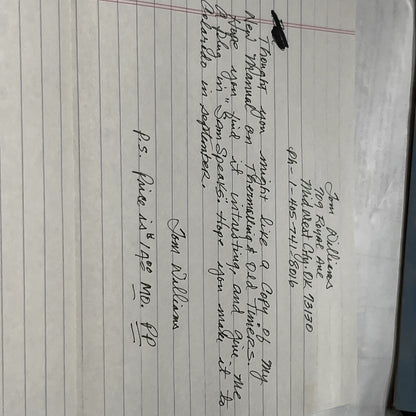 Tom Williams
709 Royal Ave
Mid West City, OK 73130
Ph - 1-405-741-8016
Thought you might like a copy of my
New Manual on Thermalling & Old Timers.
Hope you find it intresting, and give me
a plug in "Sam Speaks". Hope you made it to
Colorado in september.
Tom Williams
P.S. Price is $ MO. PP